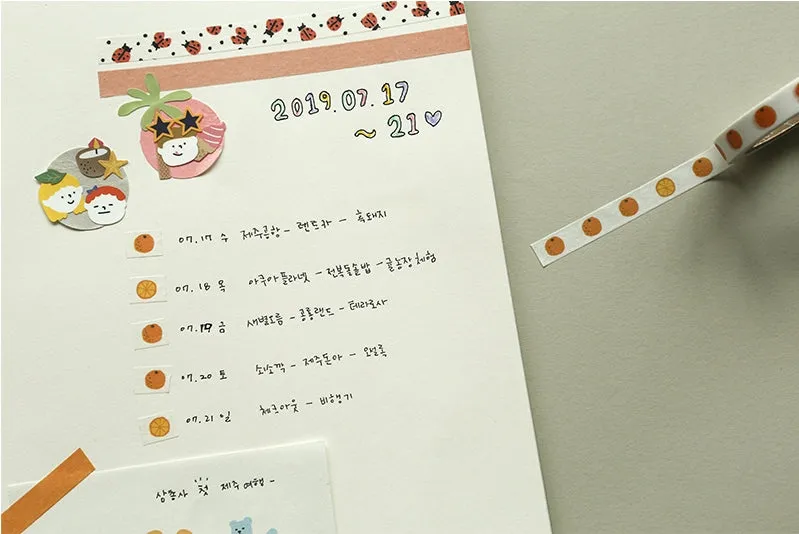 2019.07.17
~ 21
07.17 수 제주공항 - 렌트카 - 흑돼지
07.18 목 아쿠아플라넷 - 전복돌솥밥 - 귤농장체험
07.19 금 새별오름 - 공룡랜드 - 테라로사
07.20 토 소소깍 - 제주돈아 - 오설록
07.21 일 체크아웃 - 비행기
첫 제주여행 -